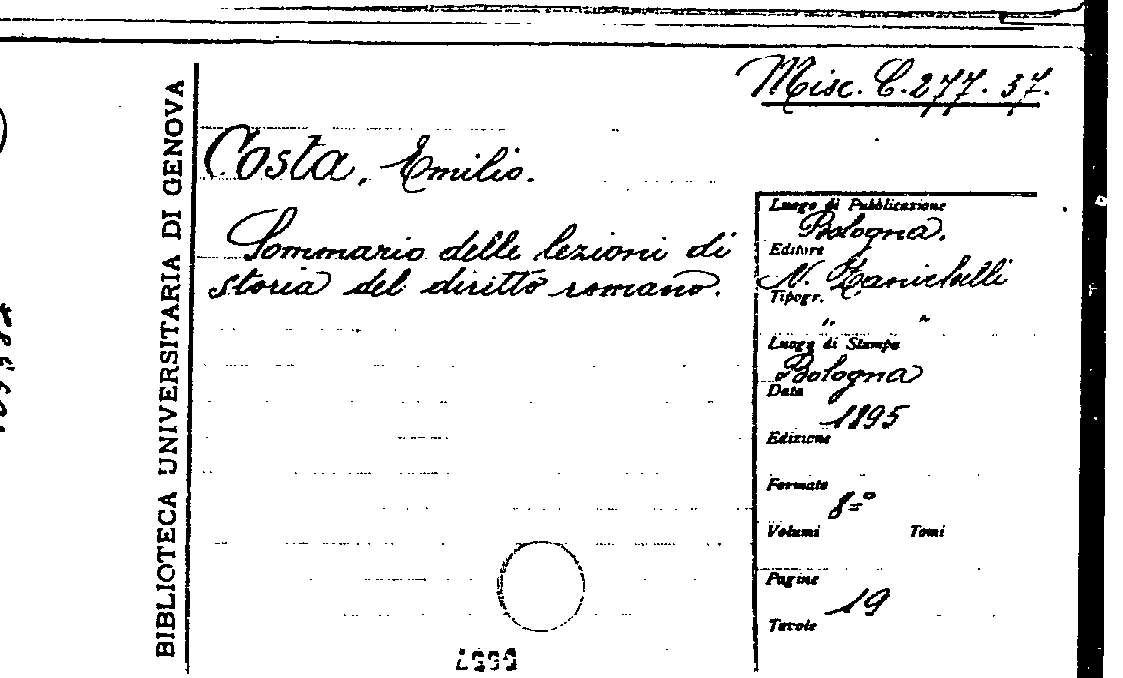 Misc. C. 277. 37.
BIBLIOTECA UNIVERSITARIA DI GENOVA
Costa, Emilio.
Sommario delle lezioni di
storia del diritto romano.
Luogo di Pubblicazione
Bologna.
Editore
N. Zanichelli
Tipogr.
" "
Luogo di Stampa
Bologna
Data
1895
Edizione
Formato
8=°
Volumi Tomi
Pagine
19
Tavole